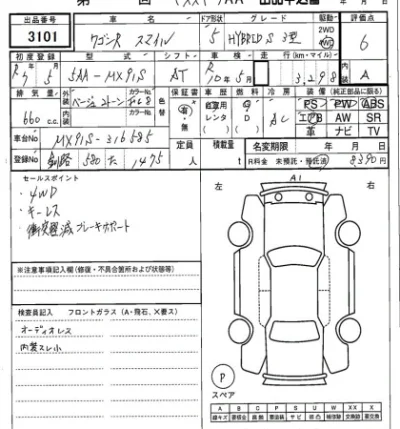 出品番号 車名 ドア形状 グレード 駆動 評価点
3101 ワゴンR スマイル 5 HYBRID S 3型 2WD 4WD 6
初度登録 型式 シフト 車検 走行 (km・マイル) 内装
R 7年 5月 5AA-MX91S AT R10年 5月 3,298 A
排気量 外装 カラーNo. 色替 保証書 車歴 燃料 冷房 装備(純正部品に限る)
660 c.c. ベージュ2トーン 内装 カラーNo. 有・無 自家用 レンタ G D AC PS PW ABS
エアB AW SR
革 ナビ TV
車台No. MX91S-316585 定員 人 積載量 t 名変期限 年 月 日
登録No. 釧路 580 た 1475 R料金 未預託・預託済 8390円
セールスポイント
・4WD
・キーレス
・衝突軽減ブレーキサポート
左 A1 右
※注意事項記入欄(修復・不具合箇所および状態等)
検査員記入 フロントガラス(A・飛石、×要ス)
オーディオレス
内装スレ小
P
スペア
A B C P S U W X XX